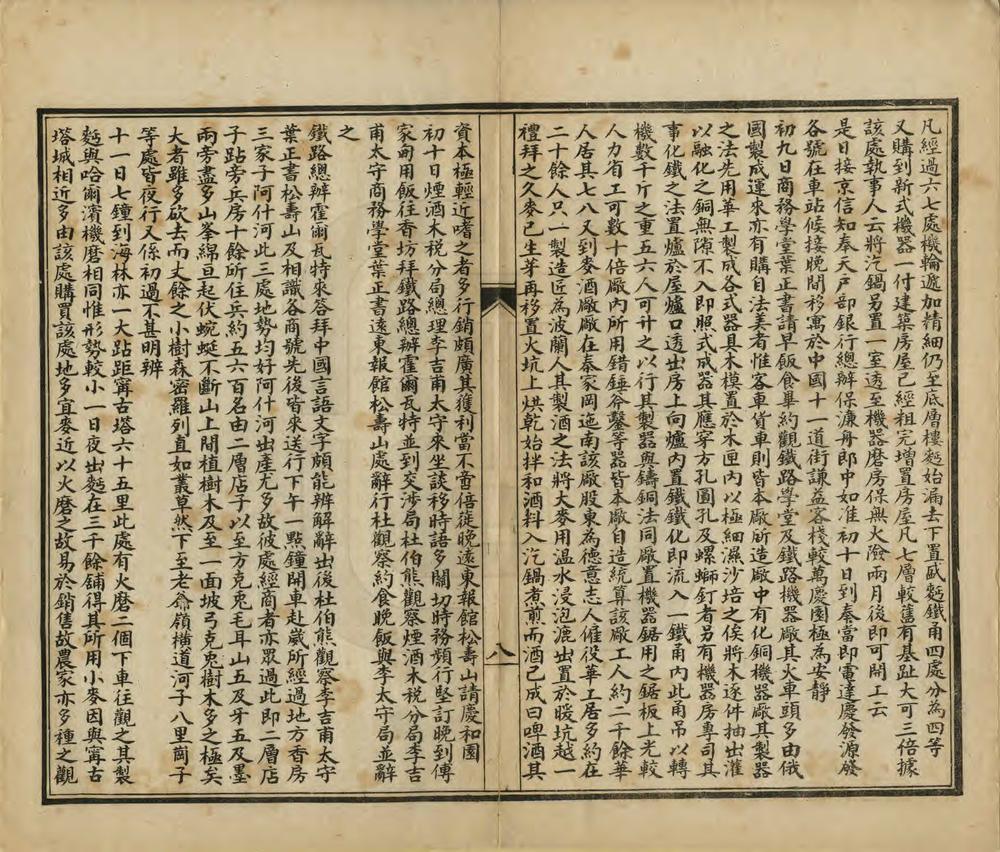 凡經過六七處機輪遞加精細仍至底層樓麪始漏去下置盛麪鐵甬四處分為四等
又購到新式機器一付建築房屋已經租完增置房屋凡七層較舊有基趾大可三倍據
該處執事人云將汽鍋另置一室透至機器磨房保無火險兩月後即可開工云
是日接京信知奉天戶部銀行總辦保濂舟郎中如准初十日到秦當即電達慶發源發
各號在車站候接晚間移寓於中國十一道街謙益客棧較萬慶園極為安靜
初九日商務學堂葉正書請早飯食畢約觀鐵路學堂及鐵路機器廠其火車頭多由俄
國製成運來亦有購自法美者惟客車貨車則皆本廠所造廠中有化銅機器廠其製器
之法先用華工製成各式器具木模置於木匣內以極細濕沙培之俟將木逐件抽出灌
以融化之銅無隙不入即照式成器其應穿方孔圓孔及螺螄釘者另有機器房專司其
事化鐵之法置爐於屋爐口透出房上向爐內置鐵鐵化即流入一鐵甬內此甬吊以轉
機數千斤之重五六人可廾之以行其製器與鑄銅法同廠置機器鋸用之鋸板上光較
人力省工可數十倍廠內所用錯錘斧鑿等器皆本廠自造統算該廠工人約二千餘華
人居其七八又到麥酒廠廠在秦家岡迤南該廠股東為德意志人僱役華工居多約在
二十餘人只一製造匠為波蘭人其製酒之法將大麥用溫水浸泡漉出置於暖坑越一
禮拜之久麥已生芽再移置火坑上烘乾始拌和酒料入汽鍋煮煎而酒已成曰啤酒其
八
資本極輕近嗜之者多行銷頗廣其獲利當不啻倍蓰晚遠東報館松壽山請慶和園
初十日煙酒木稅分局總理李吉甫太守來坐談移時語多關切時務頻行堅訂晚到傅
家甸用飯往香坊拜鐵路總辦霍爾瓦特並到交涉局杜伯熊觀察煙酒木稅分局李吉
甫太守商務學堂葉正書遠東報館松壽山處辭行杜觀察約食晚飯與李太守局並辭
之
鐵路總辦霍爾瓦特來答拜中國言語文字頗能辨解辭出後杜伯熊觀察李吉甫太守
葉正書松壽山及相識各商號先後皆來送行下午一點鐘開車赴崴所經過地方香房
三家子阿什河此三處地勢均好阿什河出產尤多故彼處經商者亦眾過此即二層店
子跕旁兵房十餘所住兵約五六百名由二層店子以至方克克毛耳山五及牙五及墨
兩旁盡多山峯綿亘起伏蜿蜒不斷山上間植樹木及至一面坡弓克克樹木多之極矣
大者雖多砍去而丈餘之小樹森密羅列直如叢草然下至老爺嶺橫道河子八里崗子
等處皆夜行又係初過不甚明辨
十一日七鐘到海林亦一大跕距甯古塔六十五里此處有火磨二個下車往觀之其製
麪與哈爾濱機磨相同惟形勢較小一日夜出麪在三千餘舖得其所用小麥因與甯古
塔城相近多由該處購買該處地多宜麥近以火磨之故易於銷售故農家亦多種之觀